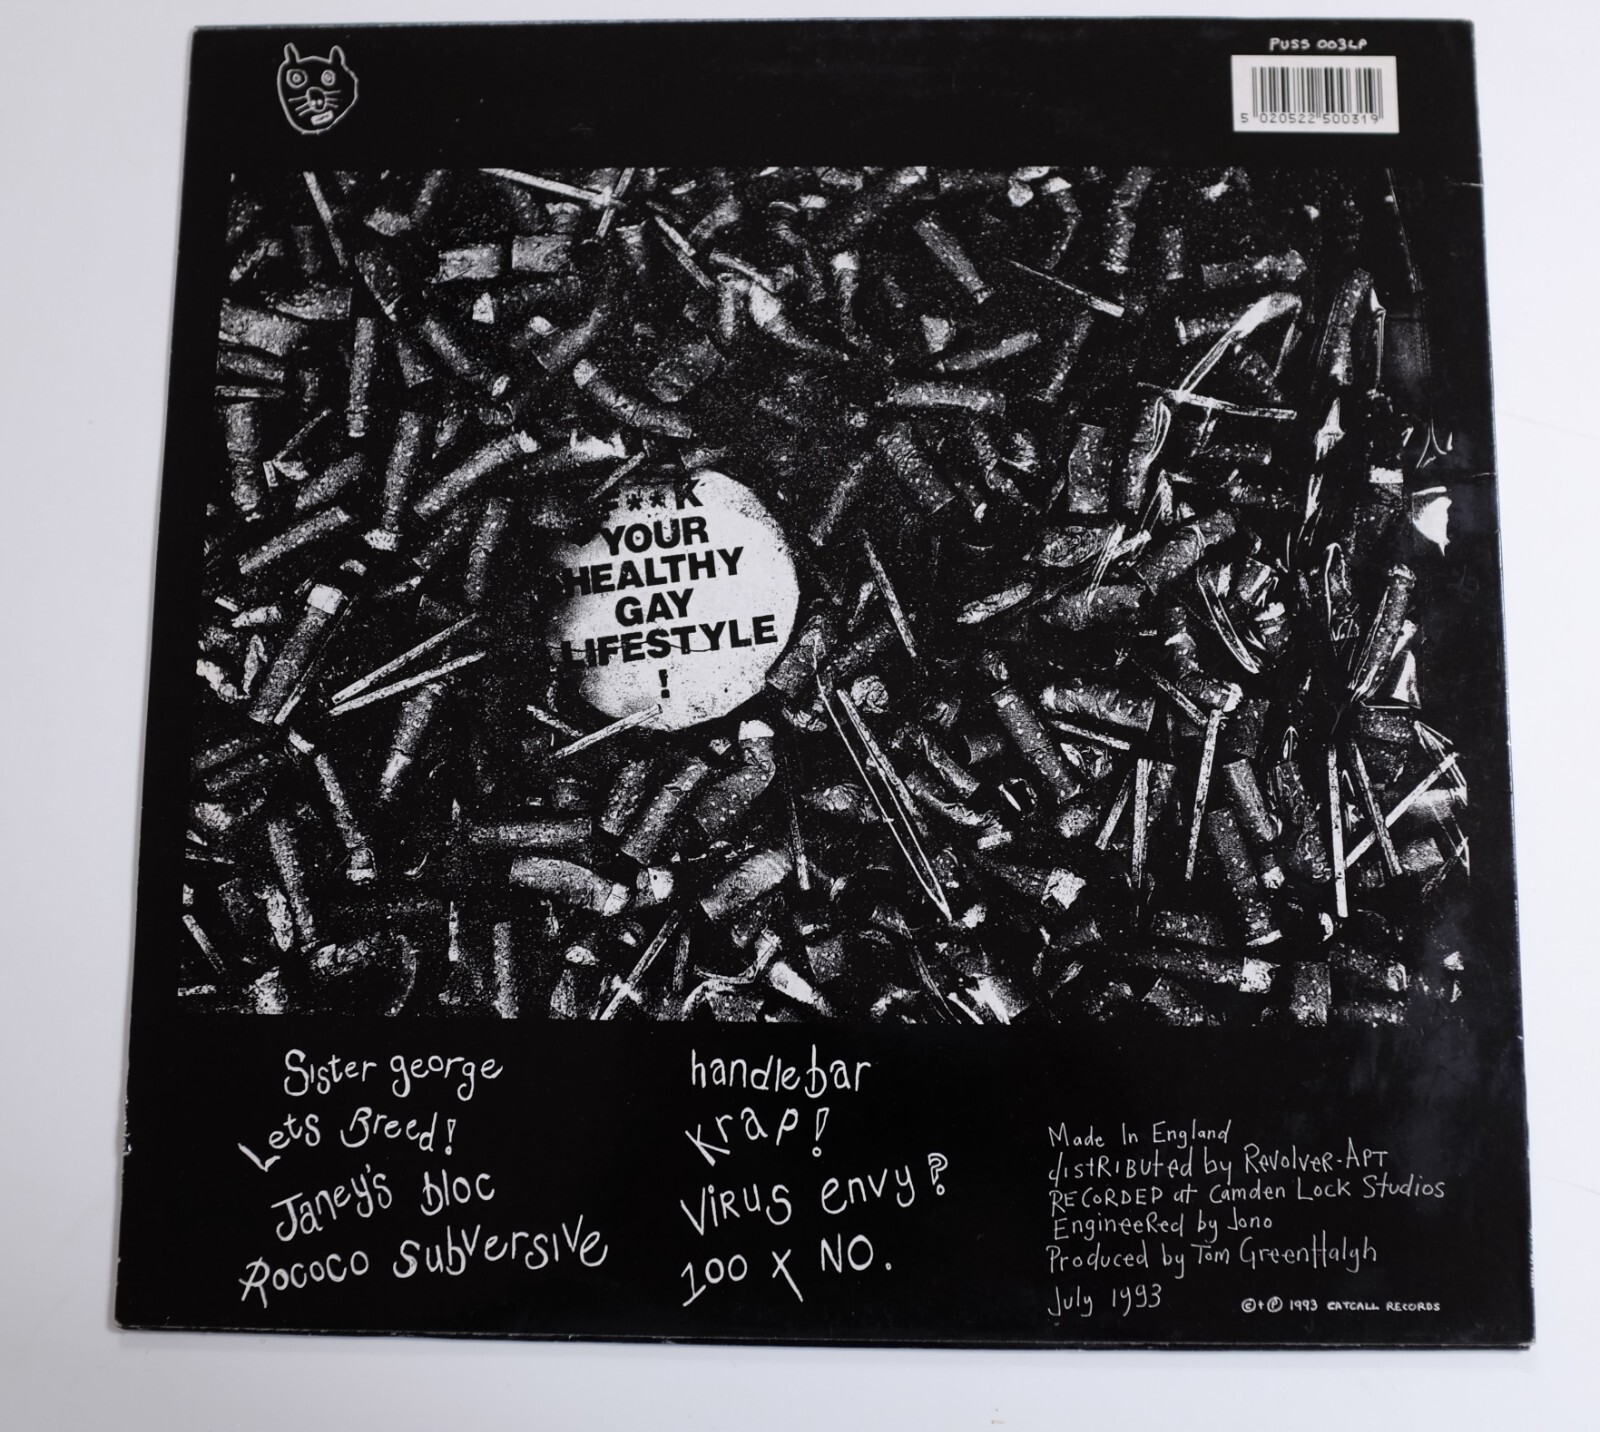 PUSS 003LP
5 020522 500319
F**K
YOUR
HEALTHY
GAY
LIFESTYLE
!
Sister george
Lets Breed!
Janey's bloc
Rococo subversive
handlebar
krap!
Virus envy?
100 X NO.
Made In England
distRIBUted by RevolveR-APT
RECORDED at Camden Lock Studios
EngineeRed by Jono
Produced by Tom GreenHalgh
July 1993
©+℗ 1993 CATCALL RECORDS